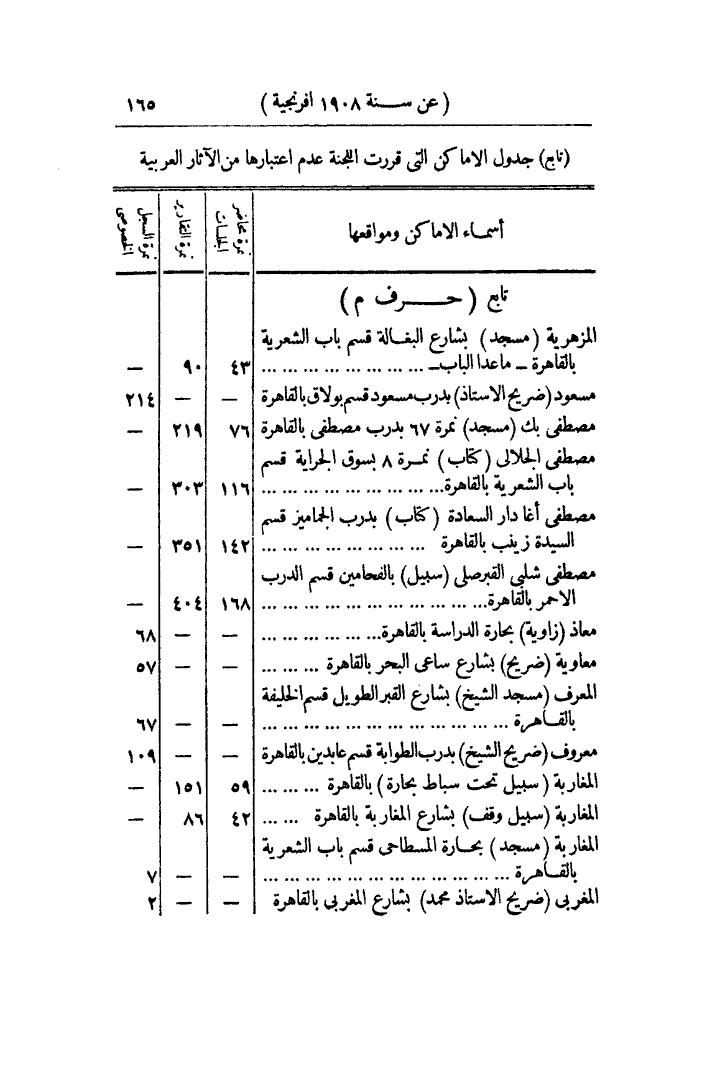 (عن سنة ١٩٠٨ افرنجية) ١٦٥
(تابع) جدول الاماكن التى قررت اللجنة عدم اعتبارها من الآثار العربية
أسماء الاماكن ومواقعها نمرة محاضر الجلسات نمرة التقارير نمرة السجل الخصوصى
تابع (حرف م)
المزهرية (مسجد) بشارع البغالة قسم باب الشعرية
بالقاهرة ـ ماعدا الباب ـ ... ... ... ... ... ... ... ٤٣ ٩٠ —
مسعود (ضريح الاستاذ) بدرب مسعود قسم بولاق بالقاهرة — — ٢١٤
مصطفى بك (مسجد) نمرة ٦٧ بدرب مصطفى بالقاهرة ٧٦ ٢١٩ —
مصطفى الجلالى (كتاب) نمرة ٨ بسوق الجراية قسم
باب الشعرية بالقاهرة... ... ... ... ... ... ... ... ... ١١٦ ٣٠٣ —
مصطفى أغا دار السعادة (كتاب) بدرب الجماميز قسم
السيدة زينب بالقاهرة ... ... ... ... ... ... ... ... ١٤٢ ٣٥١ —
مصطفى شلبى القبرصلى (سبيل) بالفحامين قسم الدرب
الاحمر بالقاهرة... ... ... ... ... ... ... ... ... ... ... ١٦٨ ٤٠٤ —
معاذ (زاوية) بحارة الدراسة بالقاهرة... ... ... ... ... ... — — ٦٨
معاوية (ضريح) بشارع ساعى البحر بالقاهرة ... ... ... — — ٥٧
المعرف (مسجد الشيخ) بشارع القبر الطويل قسم الخليفة
بالقاهرة ... ... ... ... ... ... ... ... ... ... ... ... — — ٦٧
معروف (ضريح الشيخ) بدرب الطوابة قسم عابدين بالقاهرة — — ١٠٩
المغاربة (سبيل تحت سباط بحارة) بالقاهرة ... ... ... ٥٩ ١٥١ —
المغاربة (سبيل وقف) بشارع المغاربة بالقاهرة ... ... ٤٢ ٨٦ —
المغاربة (مسجد) بحارة المسطاحى قسم باب الشعرية
بالقاهرة ... ... ... ... ... ... ... ... ... ... ... ... — — ٧
المغربى (ضريح الاستاذ محمد) بشارع المغربى بالقاهرة — — ٢